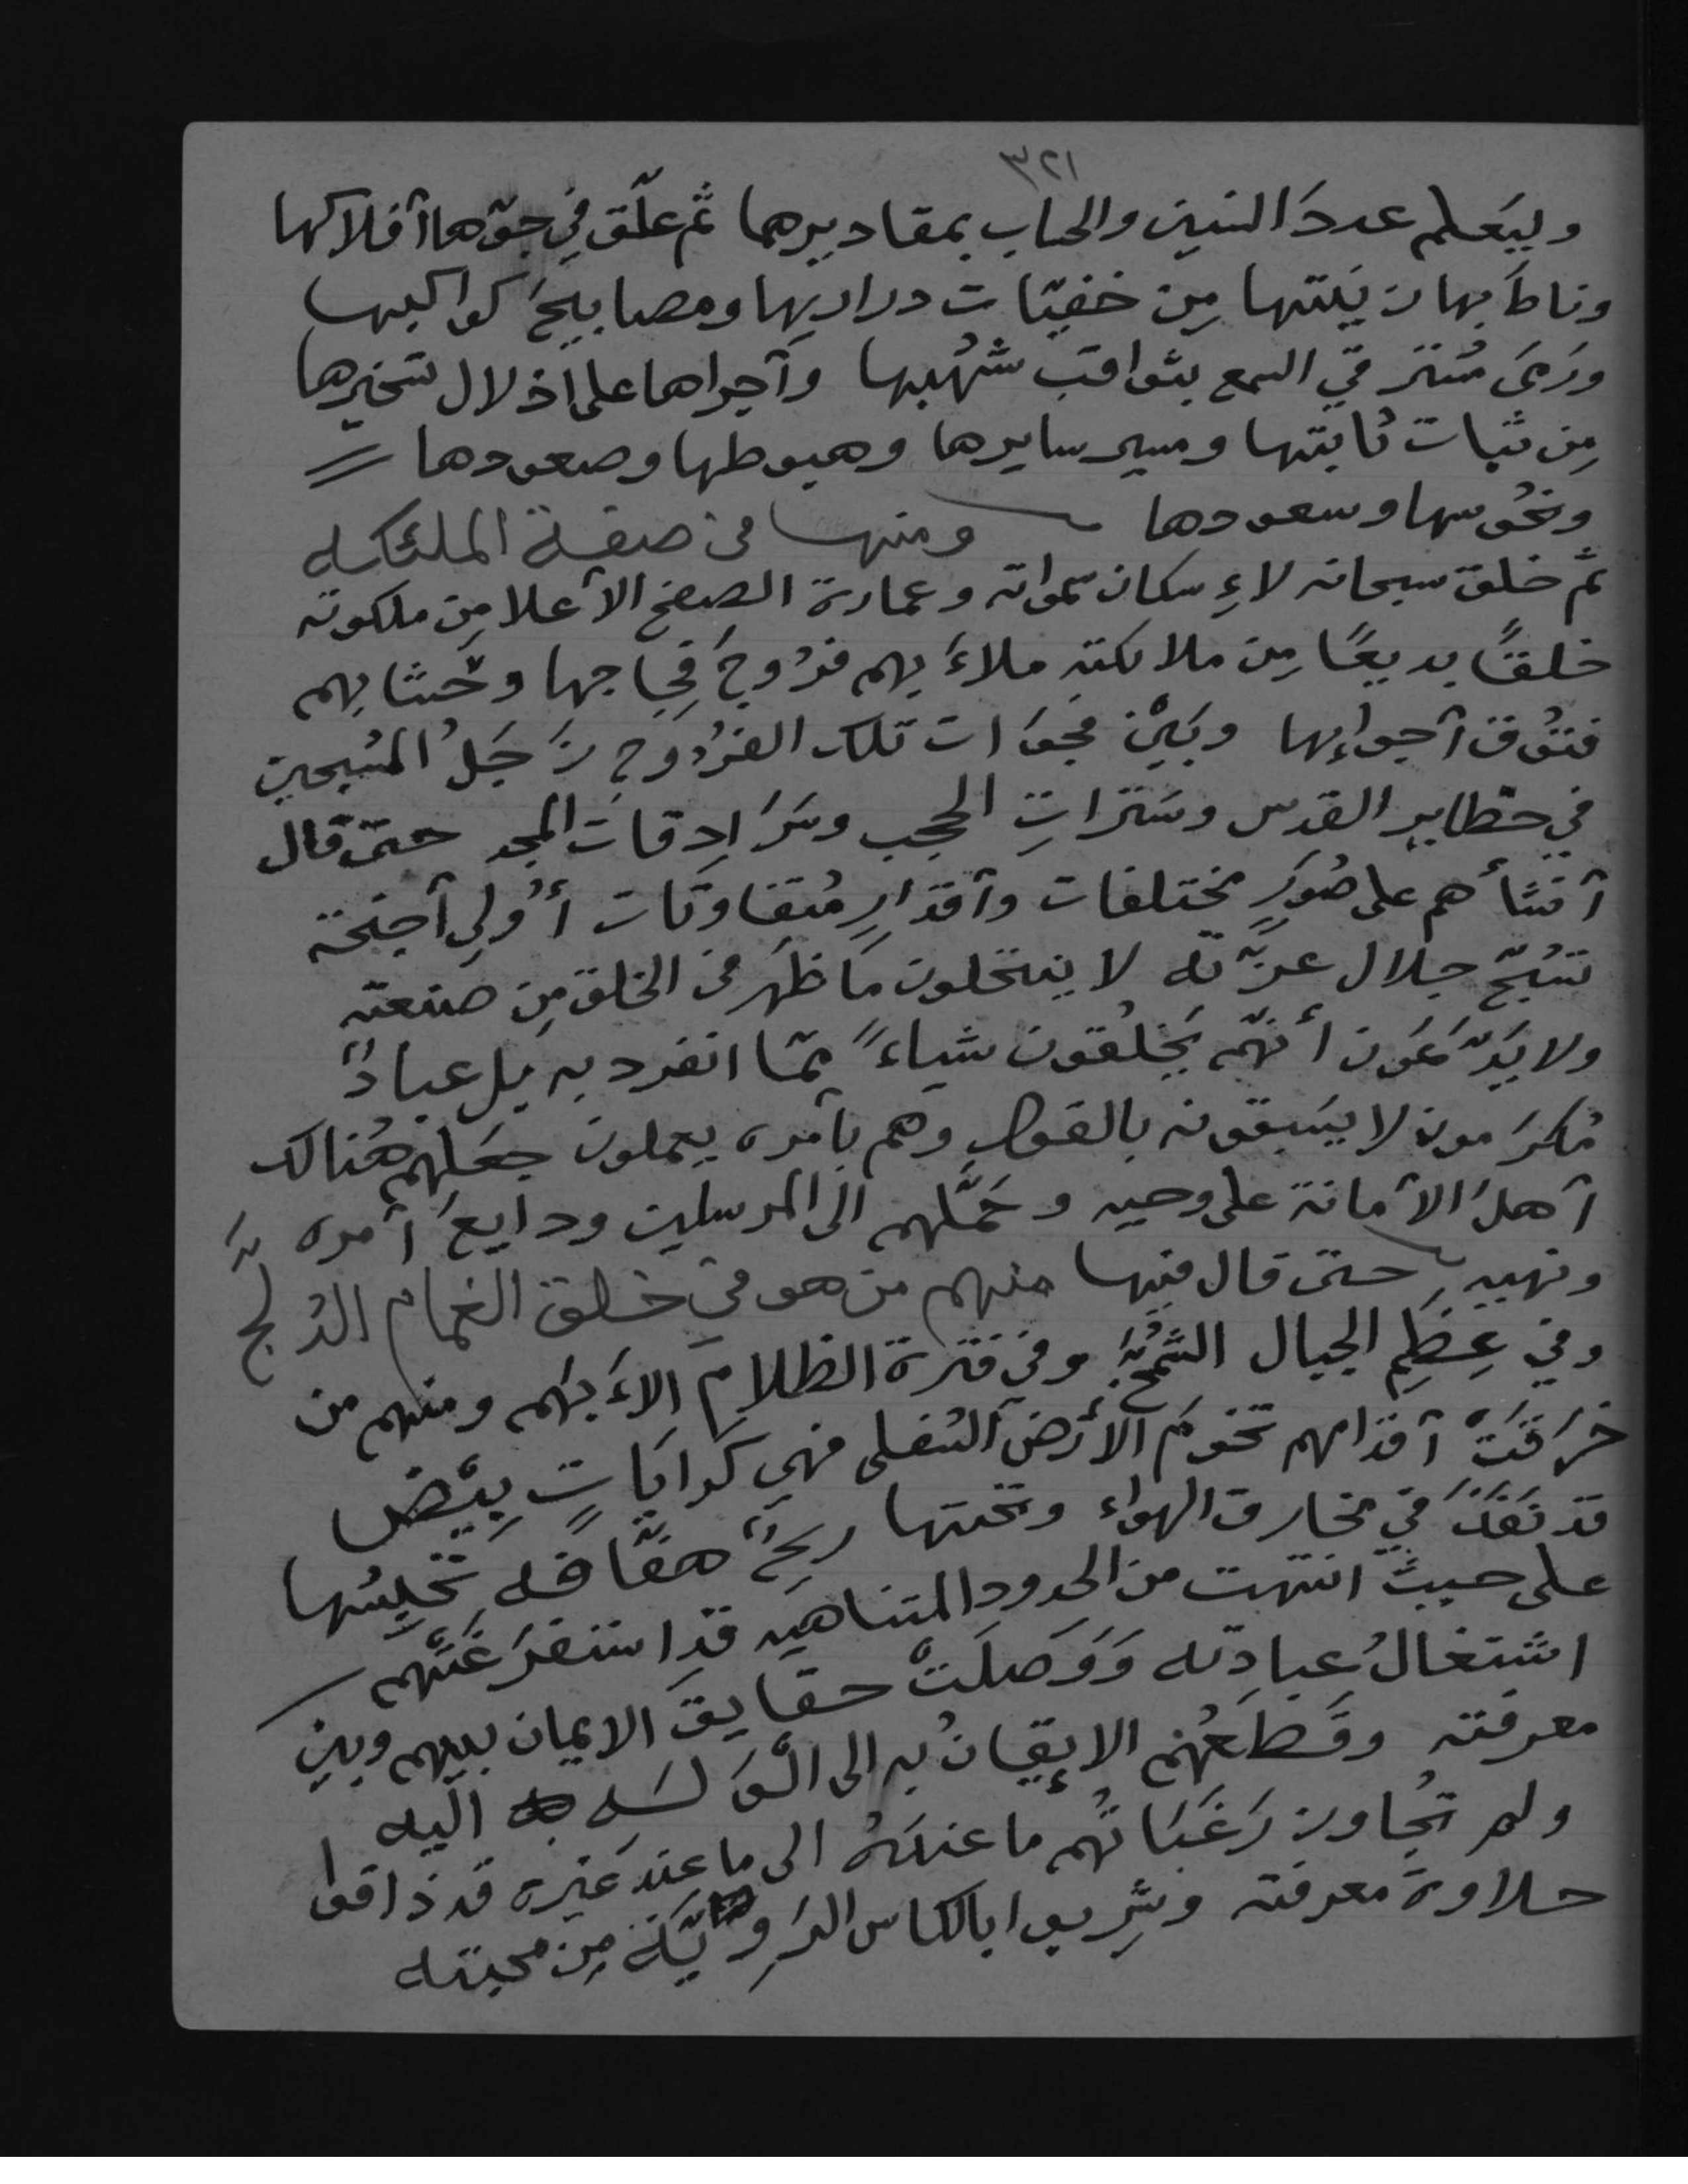 ٣٢١
وليَعلم عددَ السنين والحساب بمقاديرهما ثم علّق في جوّها آفلاكها
وناطَ بها زينتها مِن خفيّات دراريها ومصابيحَ كواكبها
ورَمَى مُسترقي السمع بثواقب شُهُبها وآجراها على اذلال تسخيرها
مِن ثبات ثابتها ومسير سايرها وهبوطها وصعودها
ونحُوسها وسعودها ومنها في صفة الملئكه
ثم خلق سبحانه لاءِسكان سمواته وعمارة الصفح الآعلا مِن ملكوته
خلقًا بديعًا مِن ملائكته ملاءَ بهم فرُوجَ فِجاجها وحَشا بهم
فتُوقَ آجواءِها وبَيْن فجَوَات تلك الفرُوج زَجَلُ المُسبحين
في حظاير القدس وسَترَاتِ الحجب وسَرَادِقاتَ المجد حتى قال
آنشأهم على صُوَرٍ مختلفات وآقدارٍ مُتفاوتات أُولي آجنحة
تُسبّح جلال عزّته لا ينتحلون مَا ظهَر في الخلق مِن صنعته
ولا يَدّعَون أنّهم يَخلُقون شياءً ممّا انفرد به بل عبادٌ
مُكرَمون لا يسَبقونه بالقول وهم بآمره يعملون جعَلهم هُنالك
آهلَ الآمانة على وحيه وحَمَّلهم الى المرسلين ودايعَ أمره
ونهيه حتى قال فيها منهم من هو في خلق الغمام الدُلّجِ
وفي عِظَمِ الجبال الشُمّخِ وفي فترة الظلام الاءَيهَم ومنهم من
خرَقَتْ آقدامهم تخومَ الأرض السُفلى فهي كرايَاتٍ بِيْضٍ
قد نفَذَت في مخارق الهواء وتحتها ريحٌ هفّافه تحَبِسُها
على حيث انتهت من الحدود المتناهيه قد استفرَغَتْهم
اشتغالُ عبادته وَوَصلَتْ حقايقَ الايمان بينهم وبين
معرفته وقطعَهُم الإيقانُ به الى الوَلَه اليه
ولم تُجاوز رَغَبَاتُهم ما عندَهُ الى ما عندَ غيره قد ذاقوا
حلاوة معرفته وشرِبوا بالكاس الرَوِيَّة مِن محبته